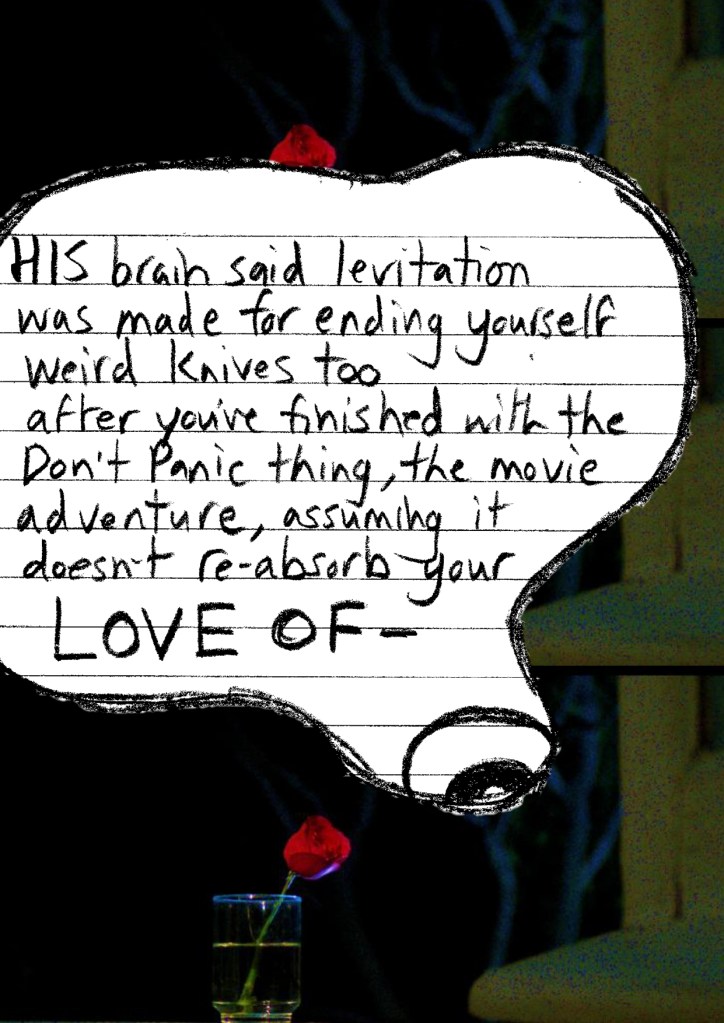 HIS brain said levitation
was made for ending yourself
weird knives too
after you've finished with the
Don't Panic thing, the movie
adventure, assuming it
doesn't re-absorb your
LOVE OF-